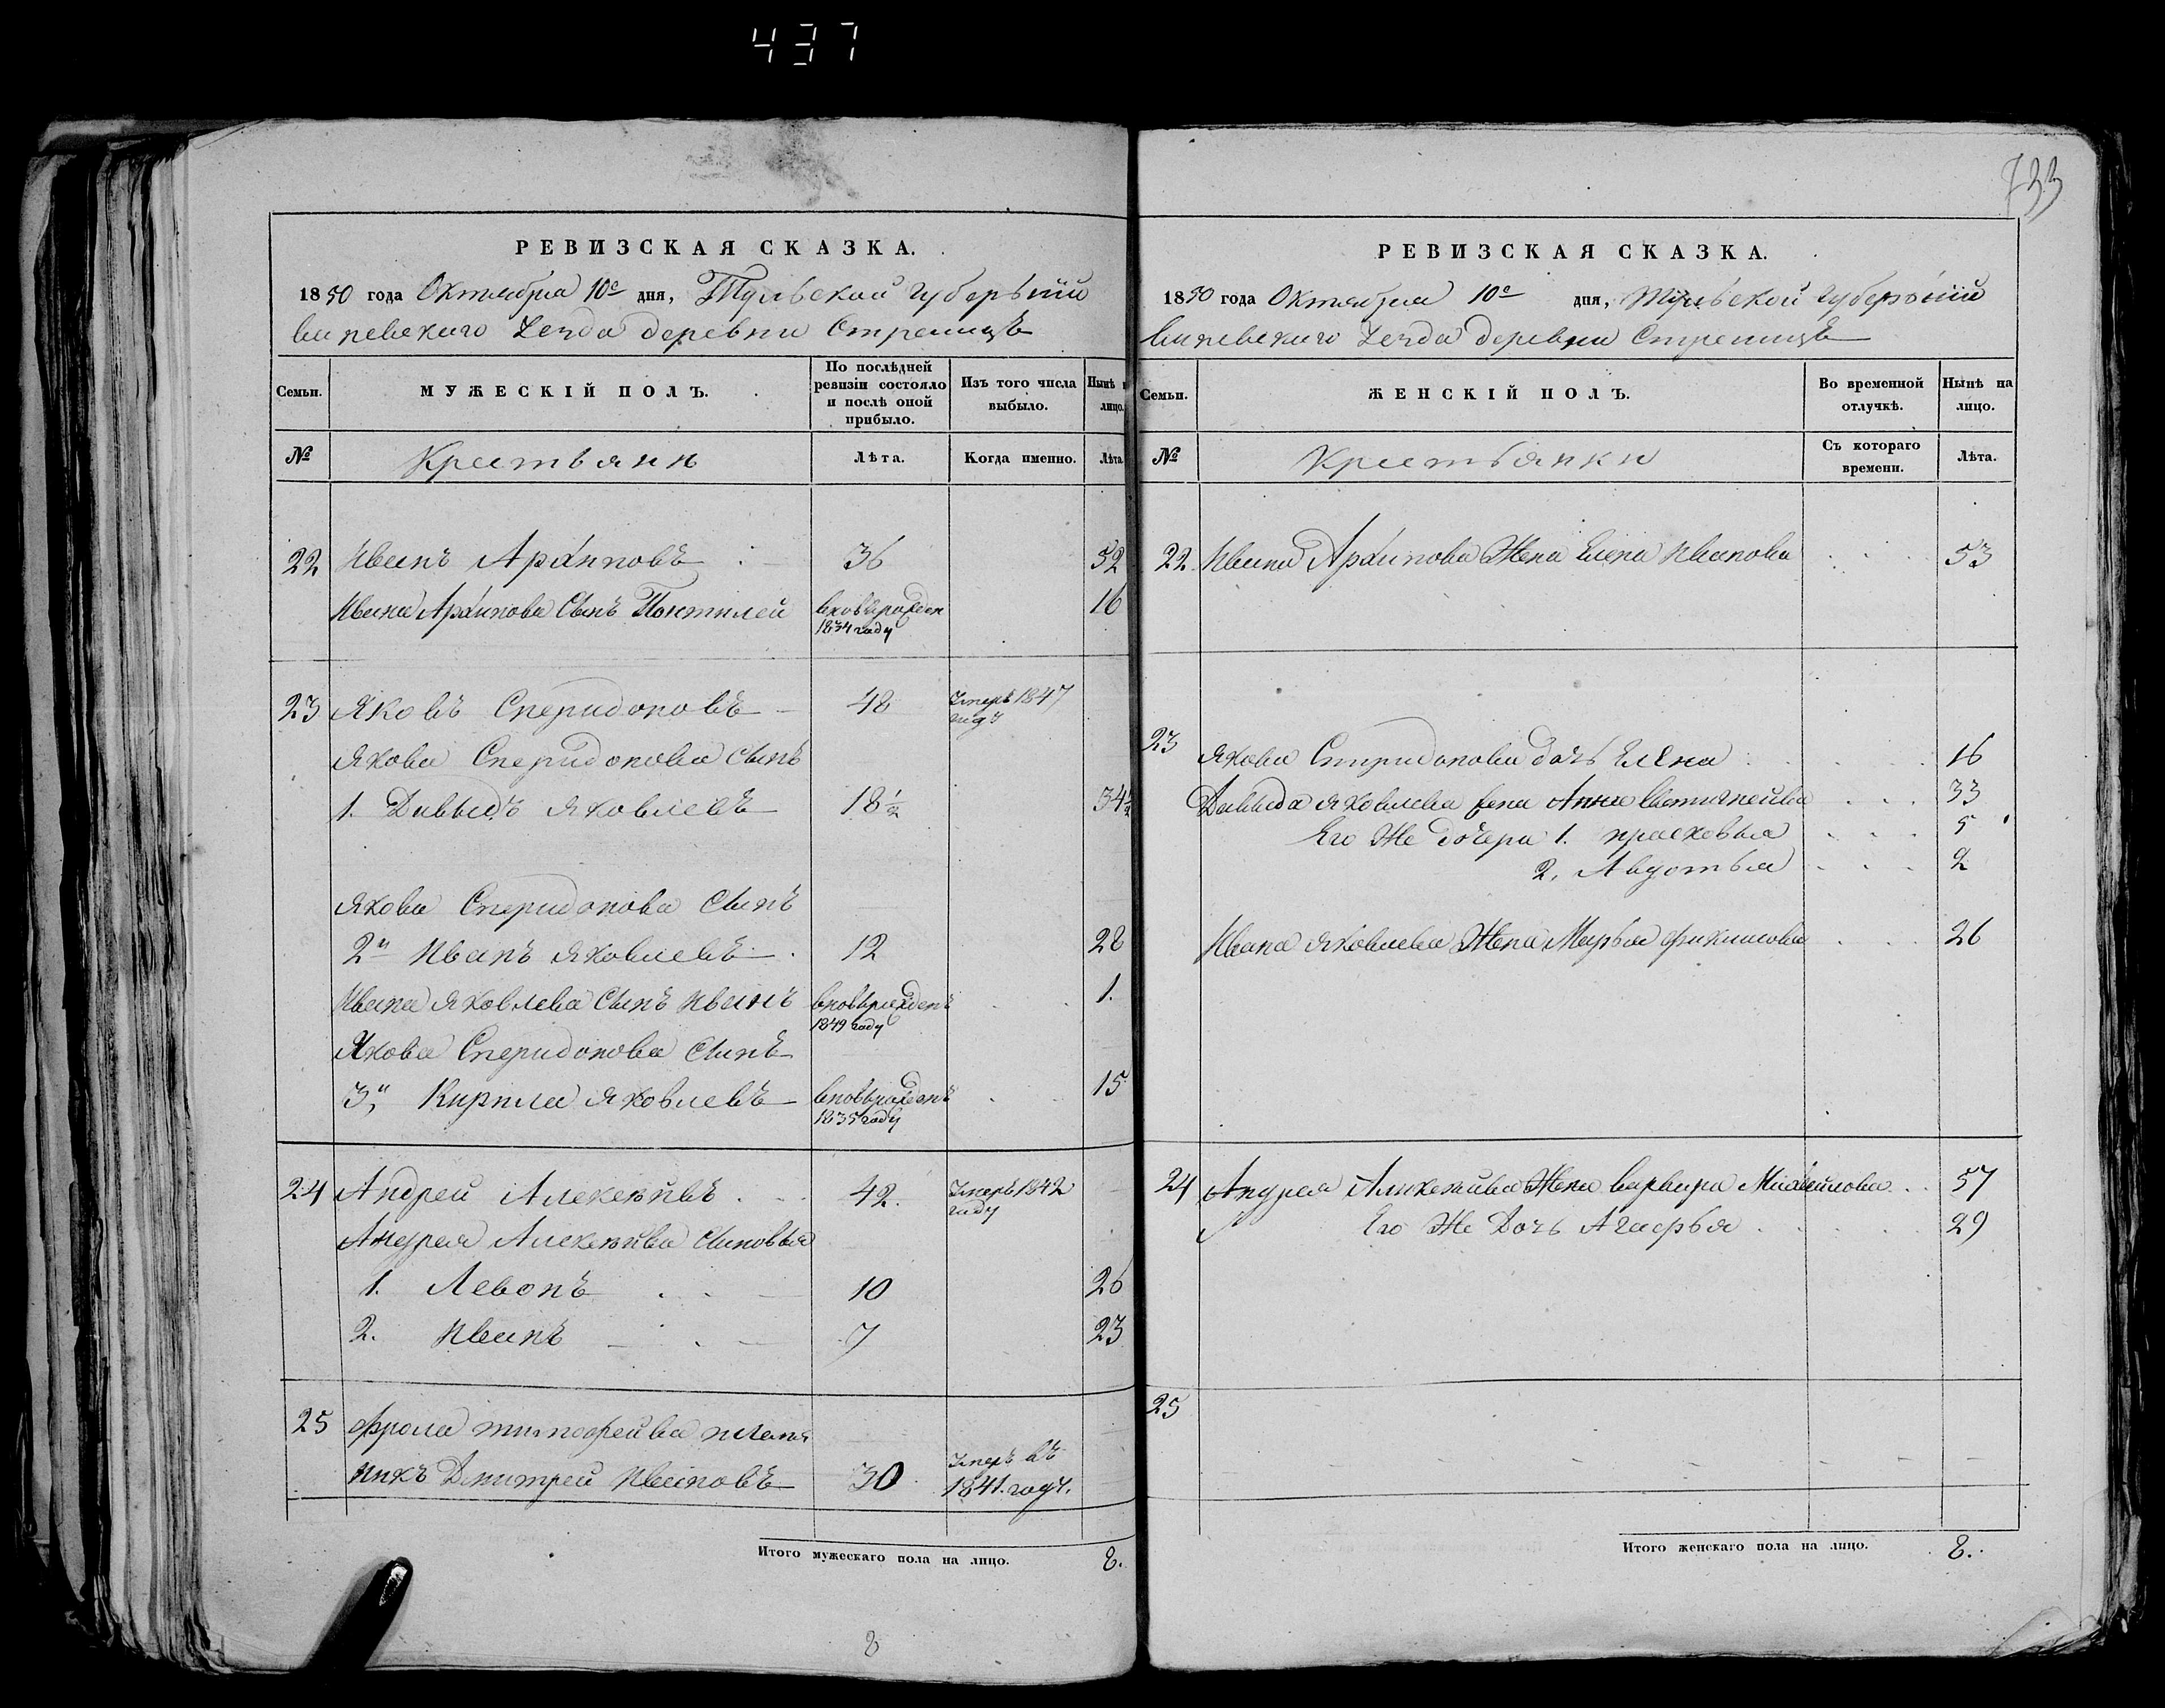 437
733
РЕВИЗСКАЯ СКАЗКА.
1850 года Октября 10е дня, Тульской Губерьнiи
Уезда деревни Стрелицъ
Семьи. МУЖЕСКIЙ ПОЛЪ. По послѣдней ревизiи состояло и послѣ оной прибыло. Изъ того числа выбыло. Нынѣ лицо.
№ Крестьяни Лѣта. Когда именно. Лѣта
22 Иванъ Архиповъ 36 52
Ивана Архипова Сынъ Понтилей 16
1834 году
23 Яковъ Сперидоновъ 48 Умеръ 1847
году
Якова Сперидонова сынъ
1. Давыдъ Яковлевъ 18½ 34½
Якова Сперидонова Сынъ
2й Иванъ Яковлевъ 12 28
Ивана Яковлева Сынъ Иванъ вновьрожденъ 1.
1849 году
Якова Сперидонова Сынъ
3й Кирила Яковлевъ вновьрожденъ 15
1835 году
24 Андрей Алексеивъ 42. Умеръ 1842
году
Андрея Алексеива Сыновья
1. Левонъ 10 26
2. Иванъ 7 23
25 Фрола Тимофейва племя
никъ Дмитрей Ивановъ 30 Умеръ въ
1841. году.
Итого мужескаго пола на лицо. 8.
8
РЕВИЗСКАЯ СКАЗКА.
1850 года Октября 10е дня, Тульской Губерьнiи
Уезда деревни Стрелицъ
Семьи. ЖЕНСКIЙ ПОЛЪ. Во временной отлучкѣ. Нынѣ на лицо.
№ Крестьянки Съ котораго времени. Лѣта.
22 Ивана Архипова Жена Елена Иванова 53
23 Якова Спиридонова дочь Елена 16
Давыда Яковлева жена Анна 33
Его Же дочери 1. Прасковья 5
2. Авдотья 2
Ивана Яковлева Жена Марья 26
24 Андрея Алексеива Жена Варвара Михайлова 57
Его Же Дочь Агафья 29
25
Итого женскаго пола на лицо. 8.